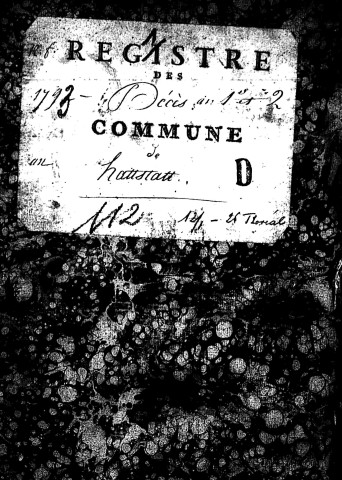 REGISTRE
DES
1793 - Décès, an 1er et 2
COMMUNE
de
hattstatt. D
112 12f - 25 floréal